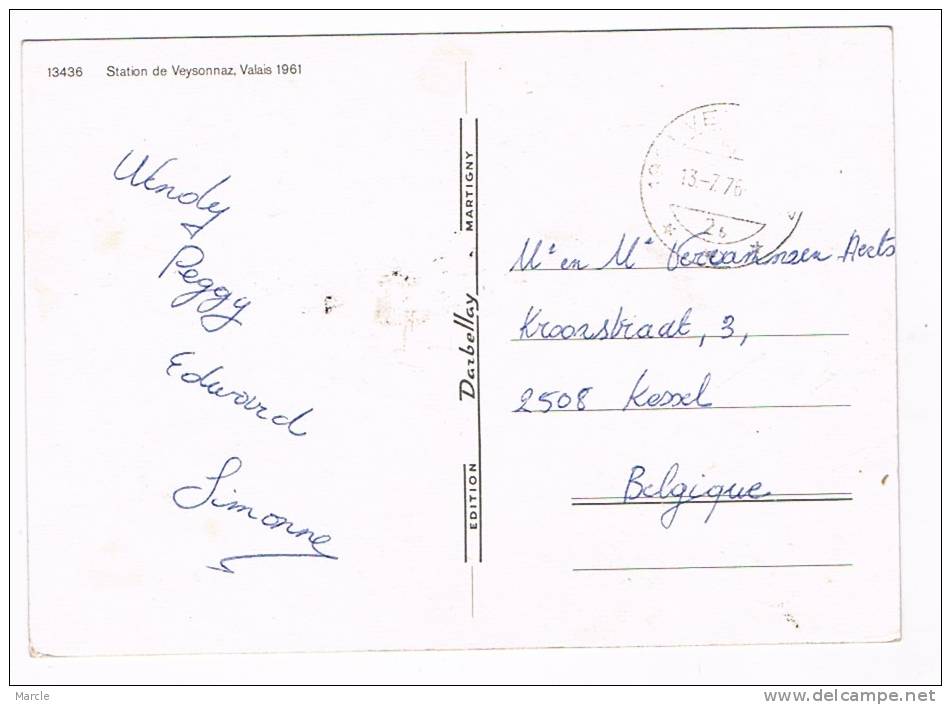 13436 Station de Veysonnaz, Valais 1961
Wendy
&
Peggy
Edward
Simonne
EDITION Darbellay MARTIGNY
13.-7.76
2b
Mr en Mr Aerts
Kroonstraat, 3,
2508 Kessel
Belgique
Marcle
www.delcampe.net